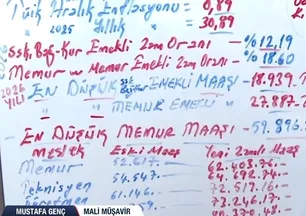 Tüik Aralık Enflasyonu = 0,89
" 2025 Yıllık " = 30,89
SSK, Bağ-Kur Emekli Zam Oranı - %12,19
Memur ve Memur Emekli Zam Oranı - %18.60
2026 YILI - EN DÜŞÜK SSK EMEKLİ MAAŞI - 18.939.
" " MEMUR EMEKLİ " - 27.887.-
EN DÜŞÜK MEMUR MAAŞI - 59.896.
Meslek Eski Maaş Yeni Zamlı Maaş
Memur 52.617.- 62.403.76.-
Teknisyen 54.547.- 64.692.74.-
61.146.- 72.517.16.-
MUSTAFA GENÇ MALİ MÜŞAVİR